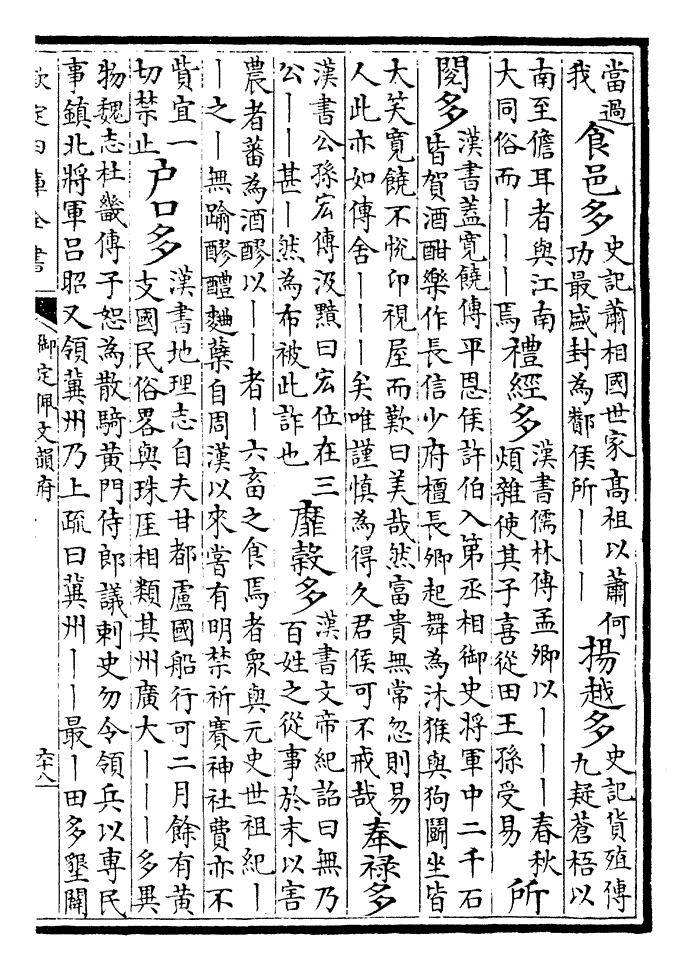 當過我食邑多史記蕭相國世家高祖以蕭何功最盛封為酇侯所———揚越多史記貨殖傳九疑蒼梧以
南至儋耳者與江南大同俗而———焉禮經多漢書儒林傳孟卿以———春秋煩雜使其子喜從田王孫受易所
閱多漢書蓋寬饒傳平恩侯許伯入第丞相御史將軍中二千石皆賀酒酣樂作長信少府檀長卿起舞為沐猴與狗鬭坐皆
大笑寬饒不悅卬視屋而歎曰美哉然富貴無常忽則易人此亦如傳舍———矣唯謹慎為得久君侯可不戒哉奉禄多
漢書公孫宏傳汲黯曰宏位在三公——甚—然為布被此詐也靡穀多漢書文帝紀詔曰無乃百姓之從事於末以害
農者蕃為酒醪以——者—六畜之食焉者衆與元史世祖紀——之—無踰醪醴麯糵自周漢以來嘗有明禁祈賽神社費亦不
貲宜一切禁止户口多漢書地理志自夫甘都盧國船行可二月餘有黄支國民俗畧與珠厓相類其州廣大———多異
物魏志杜畿傳子恕為散騎黄門侍郎議刺史勿令領兵以專民事鎮北將軍吕昭又領冀州乃上疏曰冀州——最—田多墾闢
欽定四庫全書
御定佩文韻府
六十八